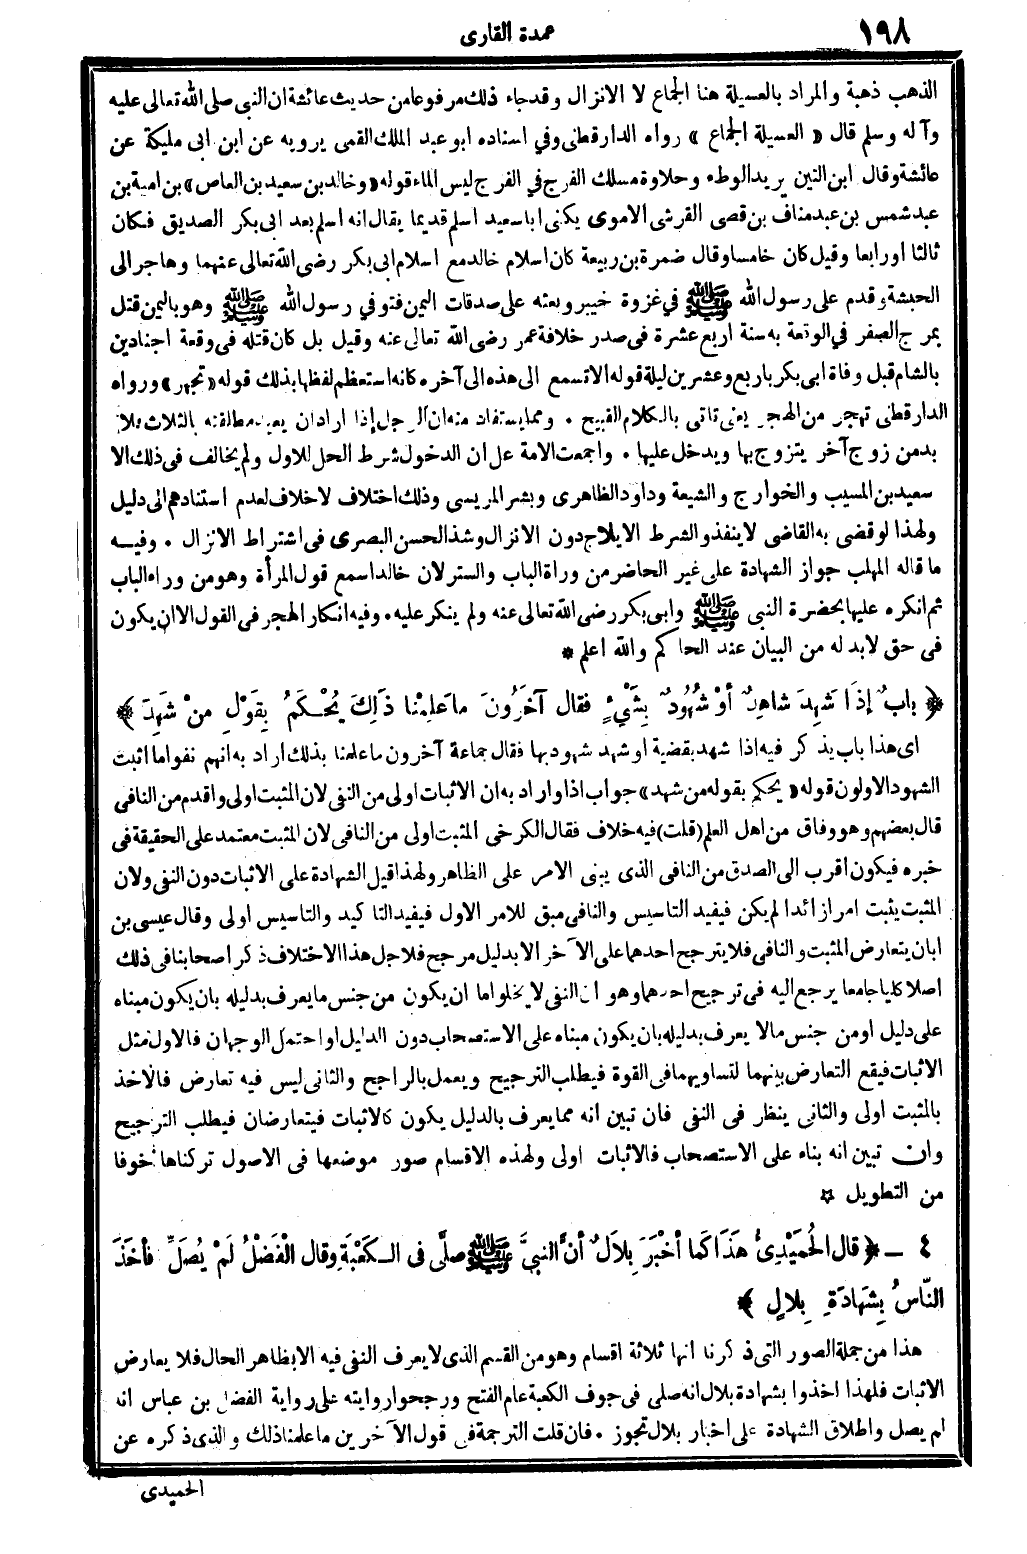 ١٩٨
عمدة القارى
الذهب ذهبة والمراد بالعسيلة هنا الجماع لا الانزال وقدجاء ذلك مرفوعا من حديث عائشة ان النبى صلى الله تعالى عليه
وآله وسلم قال « العسيلة الجماع » رواه الدارقطنى وفي اسناده ابو عبد الملك القمى يرويه عن ابن ابى مليكة عن
عائشة وقال ابن التين يريد الوطء وحلاوة مسلك الفرج في الفرج ليس الماء قوله «وخالد بن سعيد بن العاص» بن امية بن
عبد شمس بن عبد مناف بن قصى القرشى الاموى يكنى ابا سعيد اسلم قديما يقال انه اسلم بعد ابى بكر الصديق فكان
ثالثا او رابعا وقيل كان خامسا وقال ضمرة بن ربيعة كان اسلام خالد مع اسلام ابى بكر رضى الله تعالى عنهما وهاجر الى
الحبشة وقدم على رسول الله ﷺ في غزوة خيبر وبعثه على صدقات اليمن فتوفي رسول الله ﷺ وهو باليمن قتل
بمرج الصفر في الوقعة به سنة اربع عشرة فى صدر خلافة عمر رضى الله تعالى عنه وقيل بل كان قتله فى وقعة اجنادين
بالشام قبل وفاة ابى بكر باربع وعشرين ليلة قوله الاتسمع الى هذه الى آخره كانه استعظم لفظها بذلك قوله «تجهر» ورواه
الدارقطنى تهجر من الهجر يعنى تاتى بالكلام القبيح . ومما يستفاد منه ان الرجل إذا اراد ان يعيد مطلقته بالثلاث فلا
بد من زوج آخر يتزوج بها ويدخل عليها . واجمعت الامة على ان الدخول شرط الحل للاول ولم يخالف فى ذلك الا
سعيد بن المسيب والخوارج والشيعة وداود الظاهرى وبشر المريسى وذلك اختلاف لا خلاف لعدم استنادهم الى دليل
ولهذا لو قضى به القاضى لا ينفذ والشرط الايلاج دون الانزال وشذ الحسن البصرى فى اشتراط الانزال . وفيه
ما قاله المهلب جواز الشهادة على غير الحاضر من وراء الباب والستر لان خالدا سمع قول المرأة وهو من وراء الباب
ثم انكره عليها بحضرة النبى ﷺ وابى بكر رضى الله تعالى عنه ولم ينكر عليه . وفيه انكار الهجر فى القول الا ان يكون
فى حق لا بد له من البيان عند الحاكم والله اعلم *
﴿ بابٌ إذَا شَهِدَ شاهِدٌ أوْ شُهُودٌ بِشَيْءٍ فقال آخَرُونَ ما عَلِمْنا ذَلِكَ يُحْكَمُ بِقَوْلِ مِنْ شَهِدَ ﴾
اى هذا باب يذكر فيه اذا شهد بقضية او شهد شهود بها فقال جماعة آخرون ما علمنا بذلك اراد به انهم نفوا ما اثبت
الشهود الاولون قوله « يحكم بقوله من شهد» جواب اذا واراد به ان الاثبات اولى من النفى لان المثبت اولى واقدم من النافى
قال بعضهم وهو وفاق من اهل العلم (قلت) فيه خلاف فقال الكرخى المثبت اولى من النافى لان المثبت معتمد على الحقيقة فى
خبره فيكون أقرب الى الصدق من النافى الذى يبنى الامر على الظاهر ولهذا قيل الشهادة على الاثبات دون النفى ولان
المثبت يثبت امرا زائدا لم يكن فيفيد التاسيس والنافى مبق للامر الاول فيفيد التاكيد والتاسيس اولى وقال عيسى بن
ابان يتعارض المثبت والنافى فلا يترجح احدهما على الآخر الا بدليل مرجح فلاجل هذا الاختلاف ذكر اصحابنا فى ذلك
اصلا كليا جامعا يرجع اليه فى ترجيح احدهما وهو ان النفى لا يخلو اما ان يكون من جنس ما يعرف بدليله بان يكون مبناه
على دليل او من جنس ما لا يعرف بدليله بان يكون مبناه على الاستصحاب دون الدليل او احتمل الوجهان فالاول مثل
الاثبات فيقع التعارض بينهما لتساويهما فى القوة فيطلب الترجيح ويعمل بالراجح والثانى ليس فيه تعارض فالاخذ
بالمثبت اولى والثانى ينظر فى النفى فان تبين انه مما يعرف بالدليل يكون كالاثبات فيتعارضان فيطلب الترجيح
وان تبين انه بناء على الاستصحاب فالاثبات اولى ولهذه الاقسام صور موضعها فى الاصول تركناها خوفا
من التطويل ☆
٤ ـ ﴿ قال الحُمَيْدِىُّ هَذَا كَما أخْبَرَ بِلاَلٌ أنَّ النبىَّ ﷺ صلَّى فى الكَعْبَةِ وقال الْفَضْلُ لَمْ يُصَلِّ فأخَذَ
النَّاسُ بِشَهَادَةِ بِلالٍ ﴾
هذا من جملة الصور التى ذكرنا انها ثلاثة اقسام وهو من القسم الذى لا يعرف النفى فيه الا بظاهر الحال فلا يعارض
الاثبات فلهذا اخذوا بشهادة بلال انه صلى فى جوف الكعبة عام الفتح ورجحوا روايته على رواية الفضل بن عباس انه
لم يصل واطلاق الشهادة على اخبار بلال تجوز . فان قلت الترجمة فى قول الآخرين ما علمنا ذلك والذى ذكره عن
الحميدى